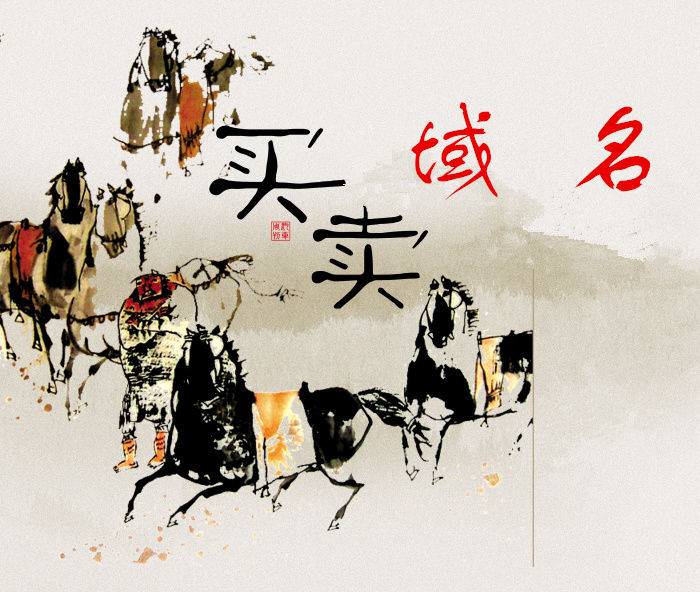 域 名
买
卖